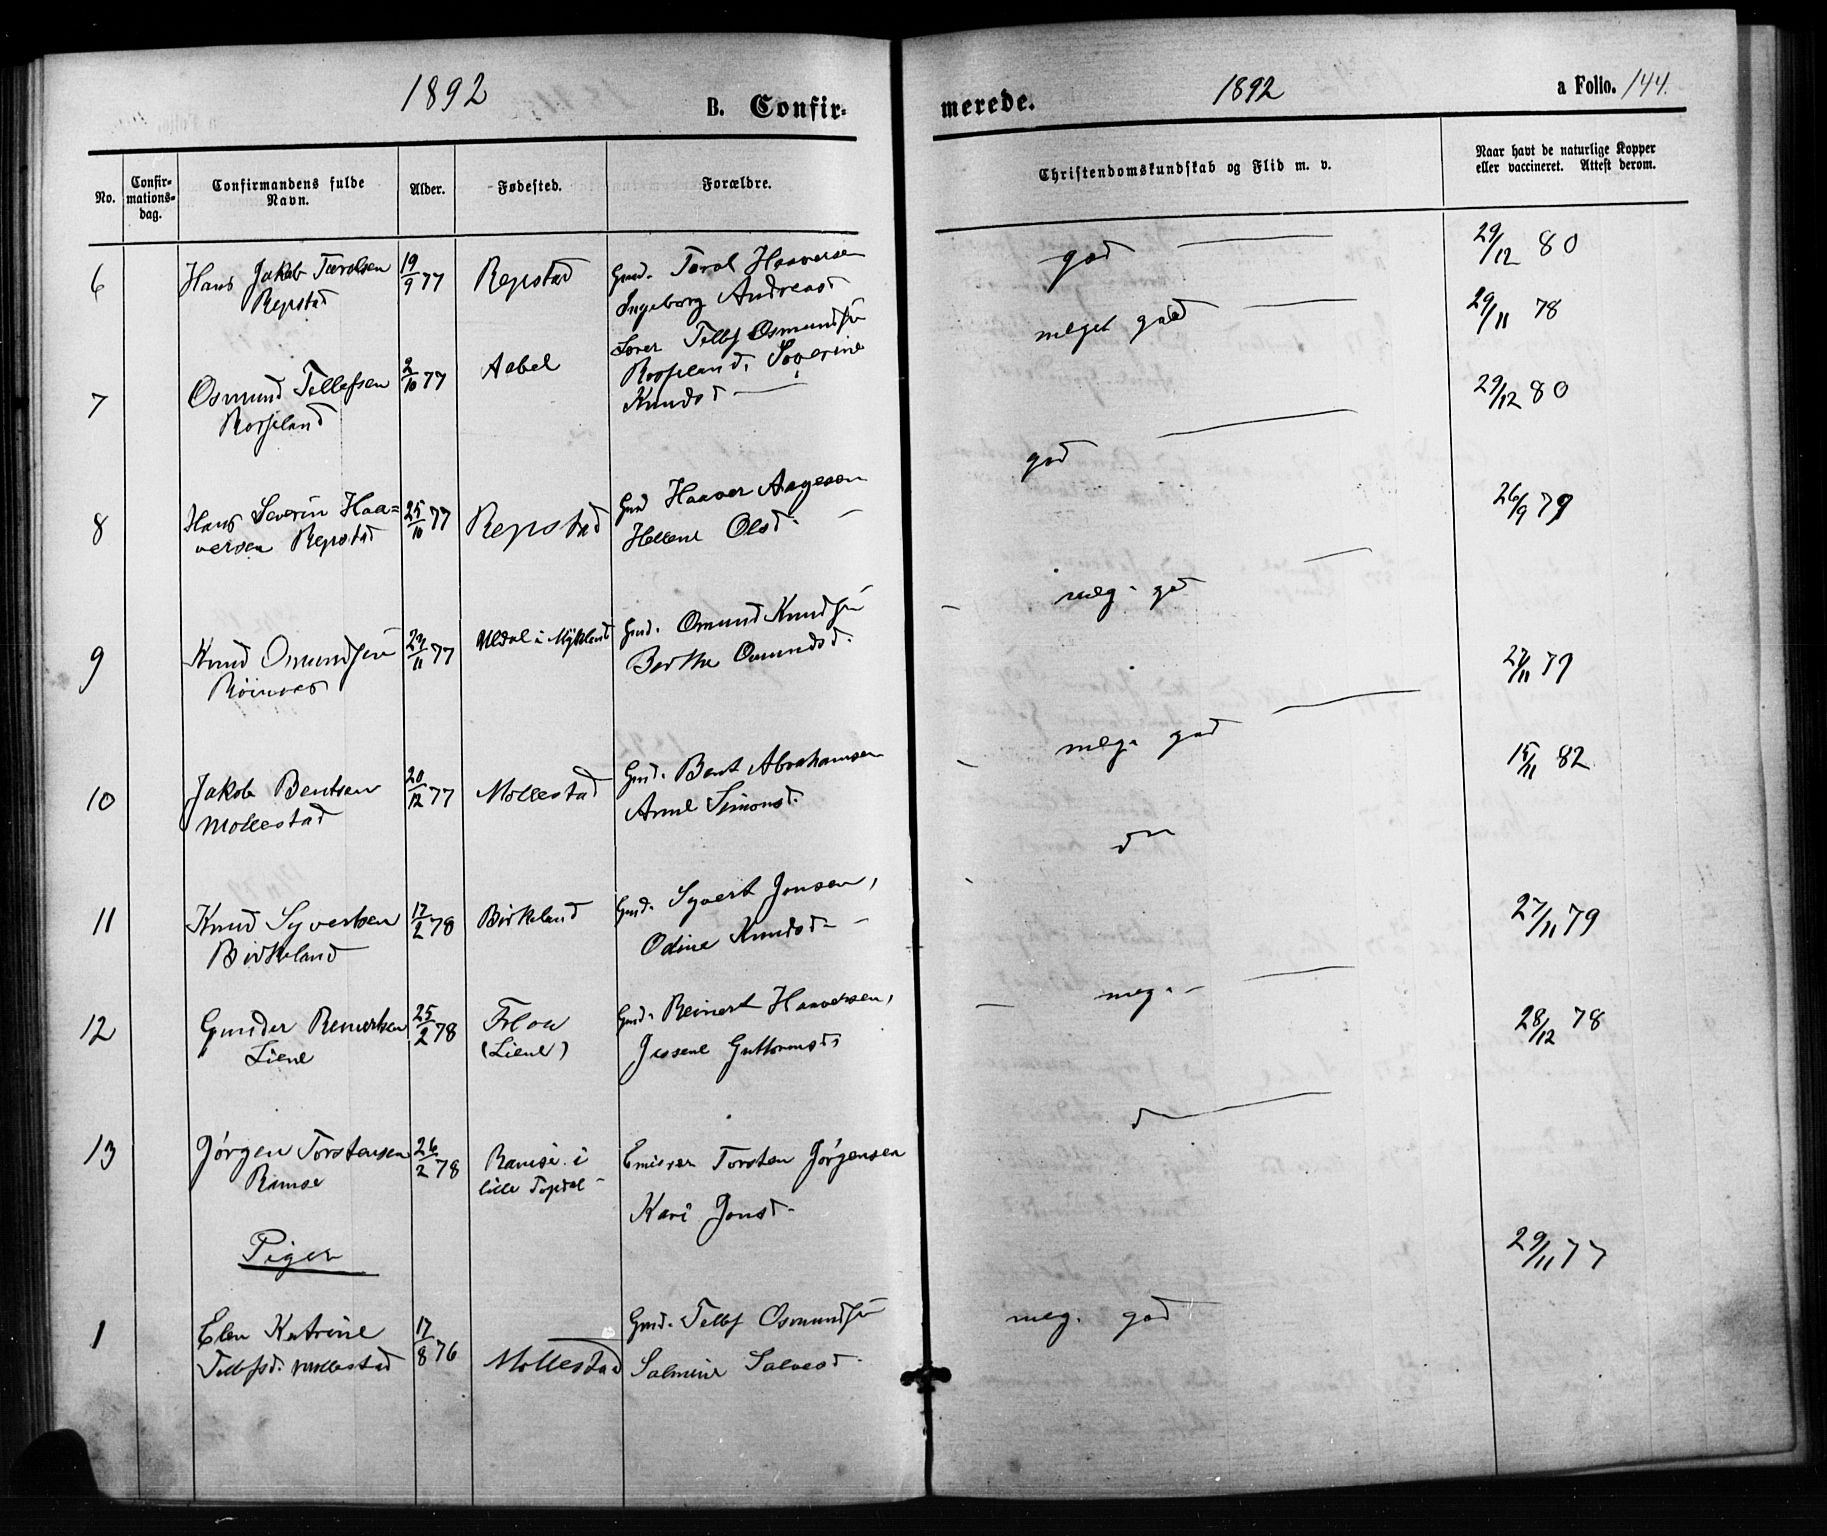 1892
B. Confir-
merede.
1892
a Folio. 144.
No.
Confir-
mations-
dag.
Confirmandens fulde
Navn.
Alder.
Fødested.
Forældre.
Christendomskundskab og Flid m. v.
Naar havt de naturlige Kopper
eller vaccineret. Attest derom.
6
Hans Jakob Tarolsen
Repstad
19/9 77
Repstad
Gmd. Tarol Haaversen
Ingeborg Andreasd
god
29/12 80
7
Osmund Tellefsen
Rosseland
2/10 77
Aabel
Tellef Osmundsen
Rosseland. Severine
Knudsd
meget god
29/11 78
8
Hans Severin Haa=
versen Repstad
25/10 77
Repstad
Gmd Haaver Aagesen
Hellene Olsd.
god
29/12 80
9
Knud Osmundsen
24/11 77
Uldal i Mykland
Gmd. Osmund Knudsen
Berthe Osmundsd.
meg. god
26/9 79
10
Jakob Bentsen
Mollestad
20/12 77
Mollestad
Gmd. Bent Abrahamsen
Anne Simonsd.
meg. god
27/11 79
11
Knud Syvertsen
Birkeland
17/2 78
Birkeland
Gmd. Syvert Jonsen,
Odine Knudsd
do
15/11 82
12
Gunder Reinertsen
Liene
25/2 78
Floa
(Liene)
Gmd. Reinert Haaversen,
Jessene Guttormsd.
meg.
27/11 79
13
Jørgen Torstensen
Ramse
26/2 78
Ramse i
lille Topdal
Torsten Jørgensen
Kari Jonsd.
d
28/12 78
Piger
1
Elen Katrine
Tellefsd. Mollestad
17/8 76
Mollestad
Gmd. Tellef Osmundsen
Salmine Salvesd.
meg. god
29/11 77